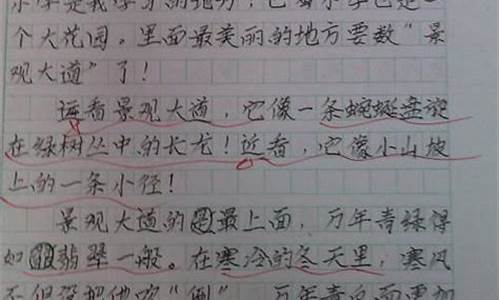 小学是我学习的地方，它
个大花园。里面最美丽的地方要数“景
观大道”了！
远看景观大道，它像一条蜿蜒盘旋
在绿树丛中的长龙！近看，它像小山坡
上的一条小径！
景观大道的最上面，万年青绿得
如翡翠一般。在寒冷的冬天里，寒风
不但没把他吹“倒”，万年青白而更加